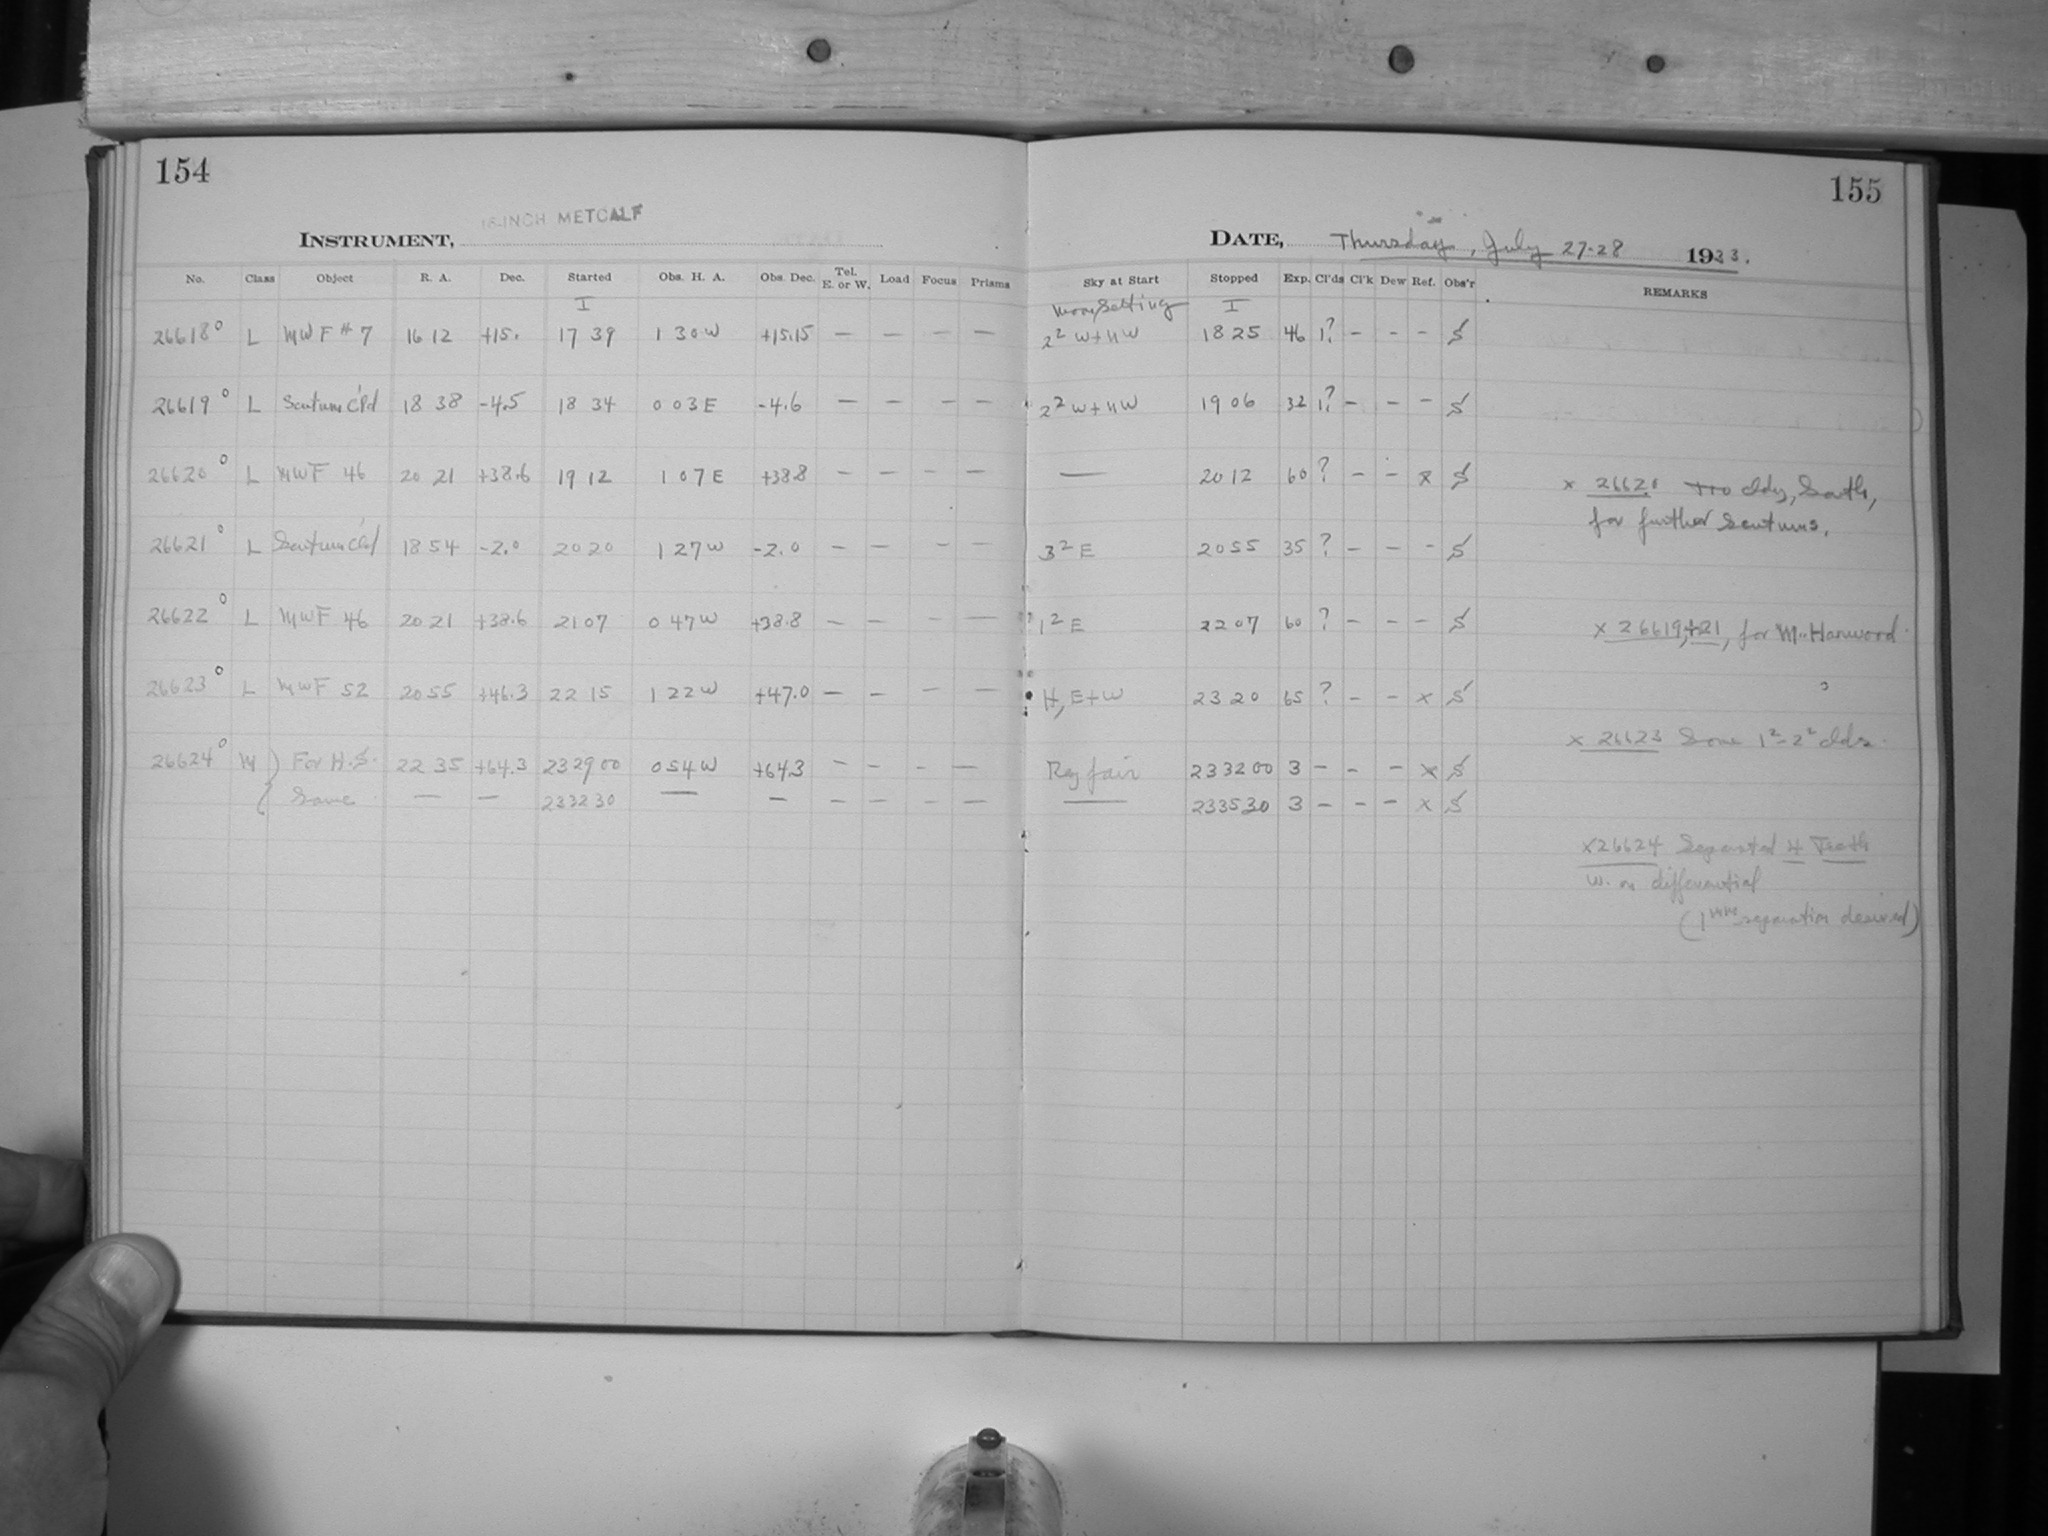 154
155
16-INCH METCALF
INSTRUMENT,
DATE, Thursday, July 27-28 1933.
No. Class Object R. A. Dec. Started Obs. H. A. Obs. Dec. Tel. E. or W. Load Focus Prisms Sky at Start Stopped Exp. Cl'ds Cl'k Dew Ref. Obs'r REMARKS
I Moon Setting I
26618° L MWF #7 16 12 +15. 17 39 1 30 W +15.15 — — — — 2² W + NW 18 25 46 1? - - - S
26619° L Scutum Cl'd 18 38 -4.5 18 34 0 03 E -4.6 — — — — 2² W + NW 19 06 32 1? - - - S
26620° L MWF 46 20 21 +38.6 19 12 1 07 E +38.8 — — — — — 20 12 60 ? - - x S
x 26620 cldy, South,
for further Scutums.
26621° L Scutum Cl'd 18 54 -2.0 20 20 1 27 W -2.0 — — — — 3² E 20 55 35 ? - - - S
26622° L MWF 46 20 21 +38.6 21 07 0 47 W +38.8 — — — — 1² E 22 07 60 ? - - - S
x 26619,+21, for M. Harwood.
26623° L MWF 52 20 55 +46.3 22 15 1 22 W +47.0 — — — — H, E+W 23 20 65 ? - - x S
x 26623 Some 1²-2² clds.
26624° M } For H.S. 22 35 +64.3 23 29 00 0 54 W +64.3 — — — — Reg fair 23 32 00 3 - - - x S
{ Same — — 23 32 30 — — — — — — — 23 35 30 3 - - - x S
x26624 Separated 4 Teeth
W. on differential
(1 mm separation desired)